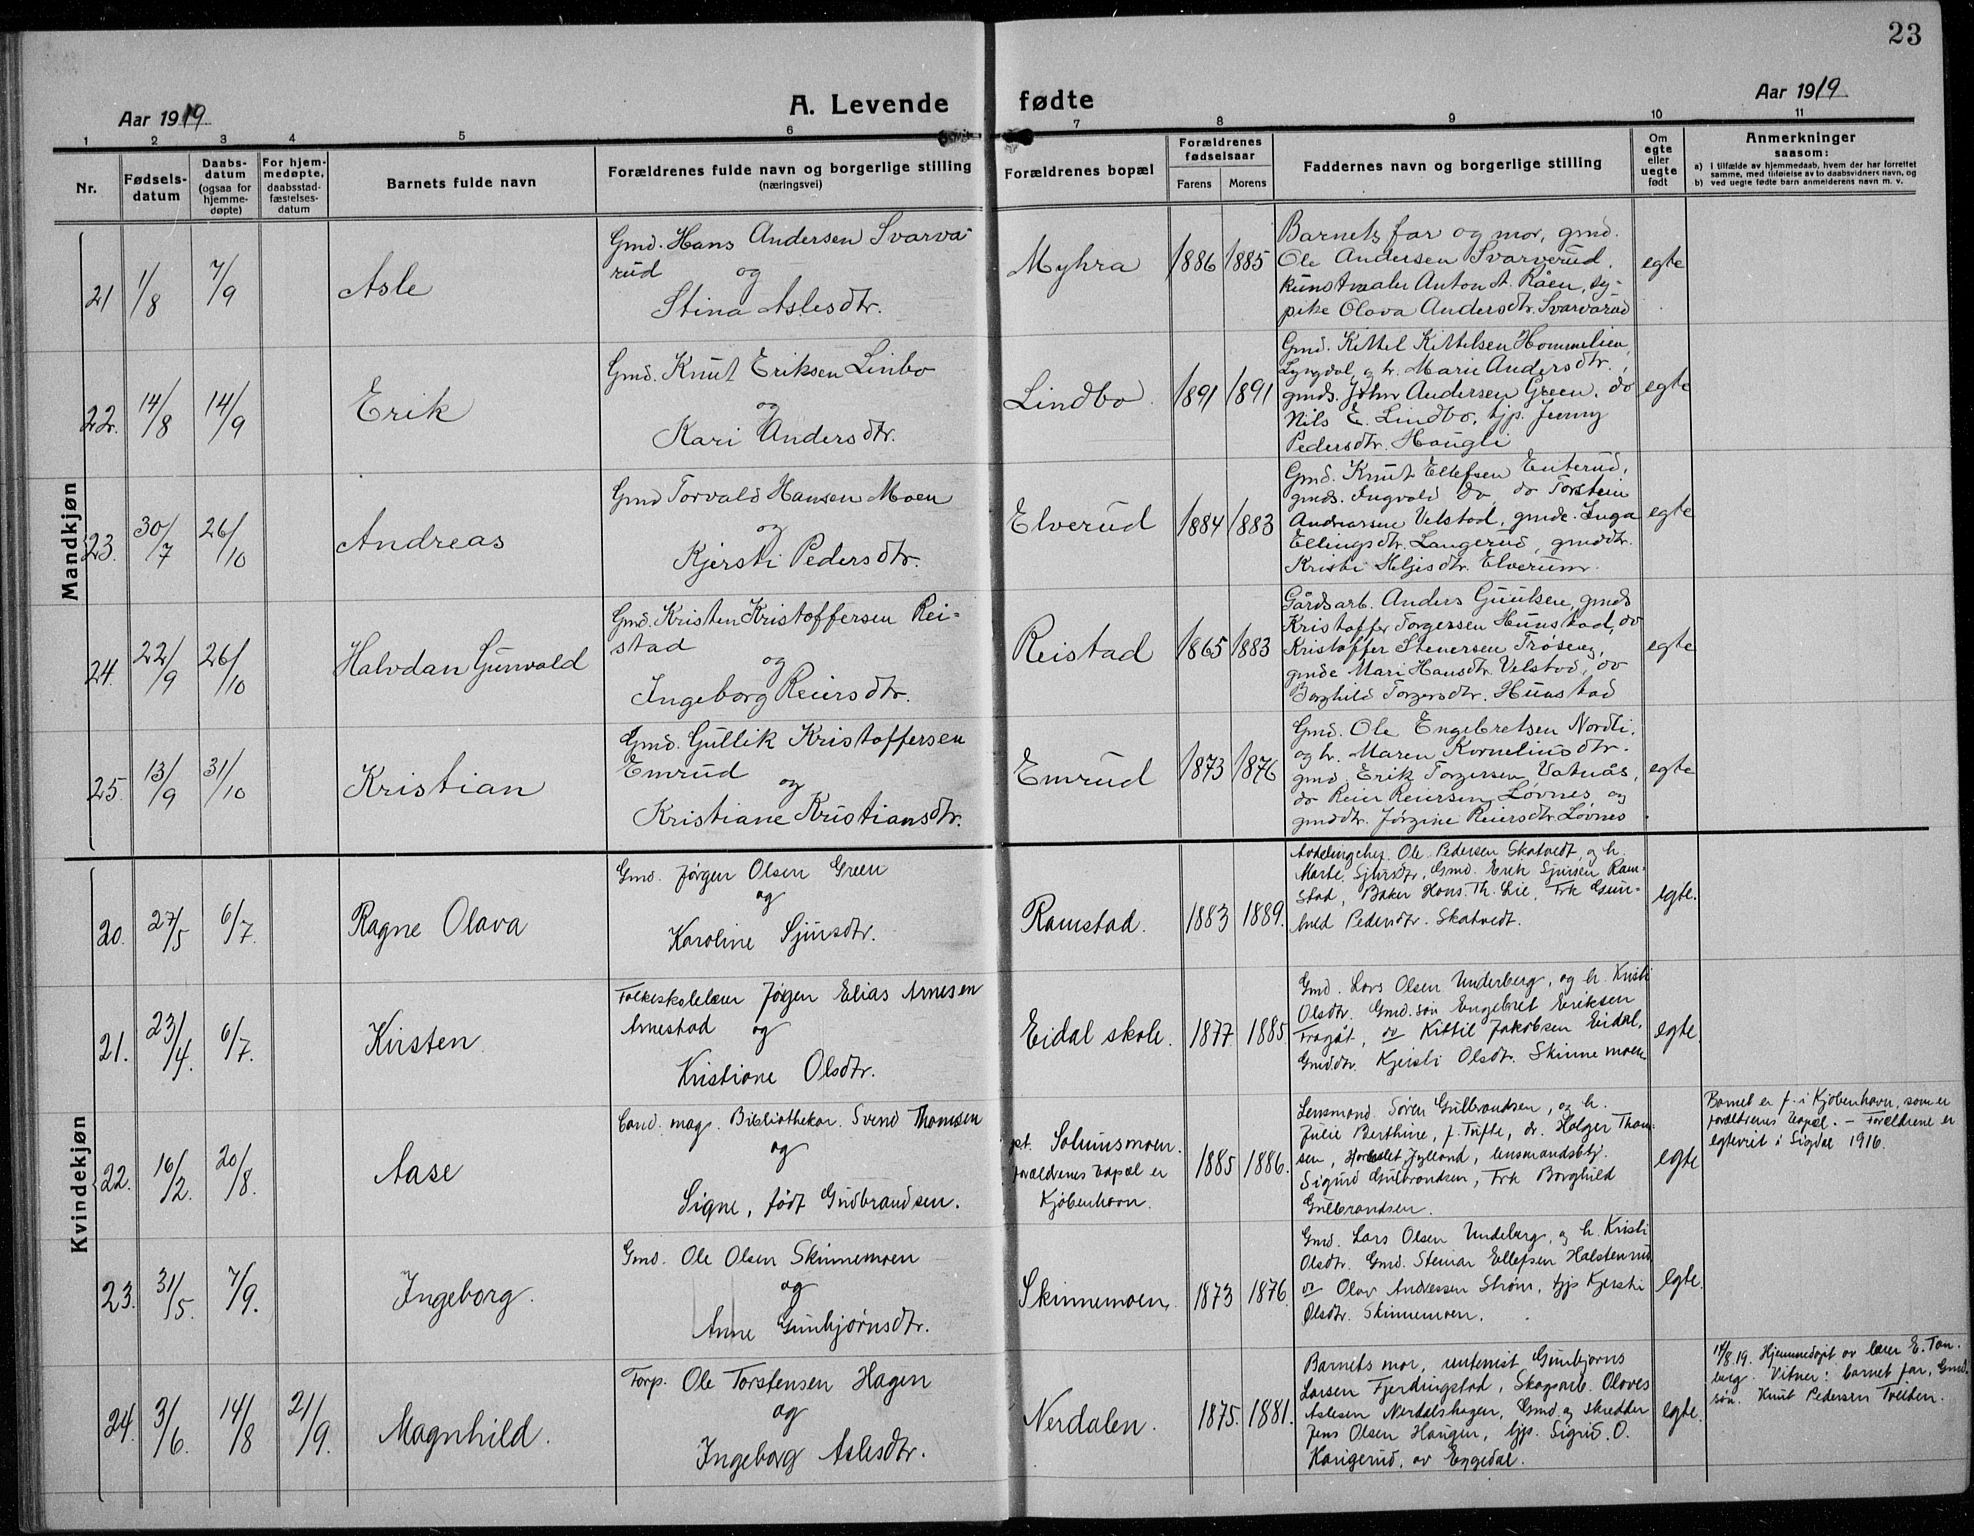 23
Aar 1919
A. Levende fødte
Aar 1919
1 2 3 4 5 6 7 8 9 10 11
Nr.
Fødsels-
datum
Daabs-
datum
(ogsaa for
hjemme-
døpte)
For hjem-
medøpte,
daabsstad-
fæstelses-
datum
Barnets fulde navn
Forældrenes fulde navn og borgerlige stilling
(næringsvei)
Forældrenes bopæl
Forældrenes
fødselsaar
Farens Morens
Faddernes navn og borgerlige stilling
Om
egte
eller
uegte
født
Anmerkninger
saasom:
a) I tilfælde av hjemmedaab, hvem der har forrettet
samme, med tilføielse av to daabsvidners navn, og
b) ved uegte fødte barn anmelderens navn m. v.
Mandkjøn
21 1/8 7/9 Asle
Gmd. Hans Andersen Svarva-
rud og
Stina Aslesdtr.
Myhra 1886 1885
Barnets far og mor, gmd.
Ole Andersen Svarverud,
kunstmaler Anton A. Råen, sy-
pike Olava Andersdtr. Svarvarud
egte
22. 14/8 14/9 Erik
Gmd. Knut Eriksen Linbo
og
Kari Andersdtr.
Lindbo 1891 1891
Gmd. Kittel Kittelsen Hommelien,
Lyngdal, og h. Marie Andersdtr.,
gmds. John Andersen Green, do
Nils E. Lindbo, tjp. Jenny
Pedersdtr. Haugli
egte
23. 30/7 26/10 Andreas
Gmd Torvald Hansen Moen
og
Kjersti Pedersdtr.
Elverud 1884 1883
Gmd. Knut Ellefsen Enterud,
gmds. Ingvald do, do Torstein
Andreassen Velstad, gmde. Inga
Ellingsdtr. Langerud, gmddtr.
Kristi Helgesdtr. Elverum.
egte
24. 22/9 26/10 Halvdan Gunvald
Gmd. Kristen Kristoffersen Rei-
stad
og
Ingeborg Reiersdtr.
Reistad 1865 1883
Gårdsarb. Anders Guulsen, gmds
Kristoffer Torgersen Hunstad, do
Kristoffer Stenersen Trøseng,
gmde Mari Hansdtr. Velstad, do
Borghild Torgersdtr. Hunstad
egte
25. 13/9 31/10 Kristian
Gmd. Gullik Kristoffersen
Emrud
og
Kristiane Kristiansdtr.
Emrud 1873 1876
Gmd. Ole Engebretsen Nordli,
og h. Maren Korneliusdtr.
gmd. Erik Torgersen Vatnås,
do Reier Reiersen Løvnes og
gmddtr. Jørgine Reiersdtr. Løvnes
egte
Kvindekjøn
20. 27/5 6/7. Ragne Olava
Gmd. Jørgen Olsen Green
og
Karoline Sjursdtr.
Ramstad. 1883 1889.
Avdelingchef. Ole Pedersen Skatvedt, og h.
Marte Sjursdtr, Gmd. Erik Sjursen Ram-
stad, Baker Hans Th. Lie, Frk Gun-
hild Pedersdtr. Skatvedt.
egte.
21. 23/4. 6/7. Kirsten
Folkeskolelærer Jørgen Elias Arnesen
Arnestad og
Kristiane Olsdtr.
Eidal skole. 1877 1885.
Gmd. Lars Olsen Underberg, og h. Kristi
Olsdtr. Gmd.søn Engebret Eriksen
Fragåt, do Kittil Jakobsen Eidal,
Gmddtr. Kjersti Olsdtr. Skinnemoen
egte
22. 16/2. 20/8. Aase
Cand. mag. Bibliothekar. Svend Thomsen
og
Signe, født Gudbrandsen.
pt. Solumsmoen.
forældrenes bopæl er
Kjøbenhavn.
1885 1886.
Lensmand Søren Gulbrandsen, og h.
Julie Berthine, f. Tufte, dr. Holger Thom-
sen, Horbelet Jylland, lensmandsbtj.
Sigurd Gulbrandsen, Frk Borghild
Gulbrandsen.
egte
Barnet er f. i Kjøbenhavn, som er
forældrenes bopæl. – Forældrene er
egteviet i Sigdal 1916.
23. 31/5. 7/9. Ingeborg.
Gmd. Ole Olsen Skinnemoen
og
Anne Gunbjørnsdtr.
Skinnemoen. 1873 1876.
Gmd. Lars Olsen Undeberg, og h. Kristi
Olsdtr. Gmd. Steinar Ellefsen Halstenrud
do Olav Andressen Strøm, tjp Kjersti
Olsdtr. Skinnemoen.
egte.
24. 3/6. 14/8 21/9. Magnhild.
Torp. Ole Torstensen Hagen
og
Ingeborg Aslesdtr.
Nerdalen. 1875. 1881.
Barnets mor, rentenist Gunbjørns
Larsen Fjerdingstad, Skogsarb. Olaves
Aslesen Nerdalshagen, Gmd. og skredder
Jens Olsen Haugen, tjp. Sigrid O.
Haugerud, av Eggedal.
egte.
14/8.19. Hjemmedøpt av lærer E. Tan-
berg. Vitner: barnet far, Gmd.
søn. Knut Pedersen Tveiten.